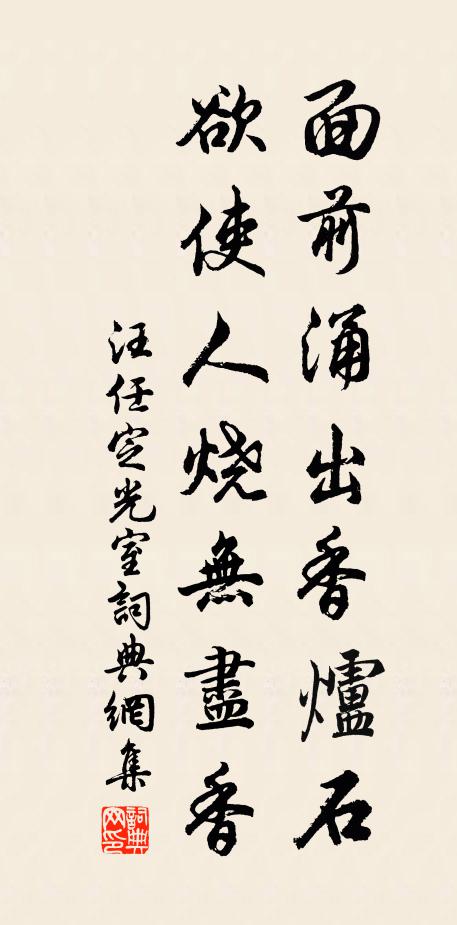 面前涌出香爐石
欲使人烧無盡香
汪任定光室詞典網集
詞典网印